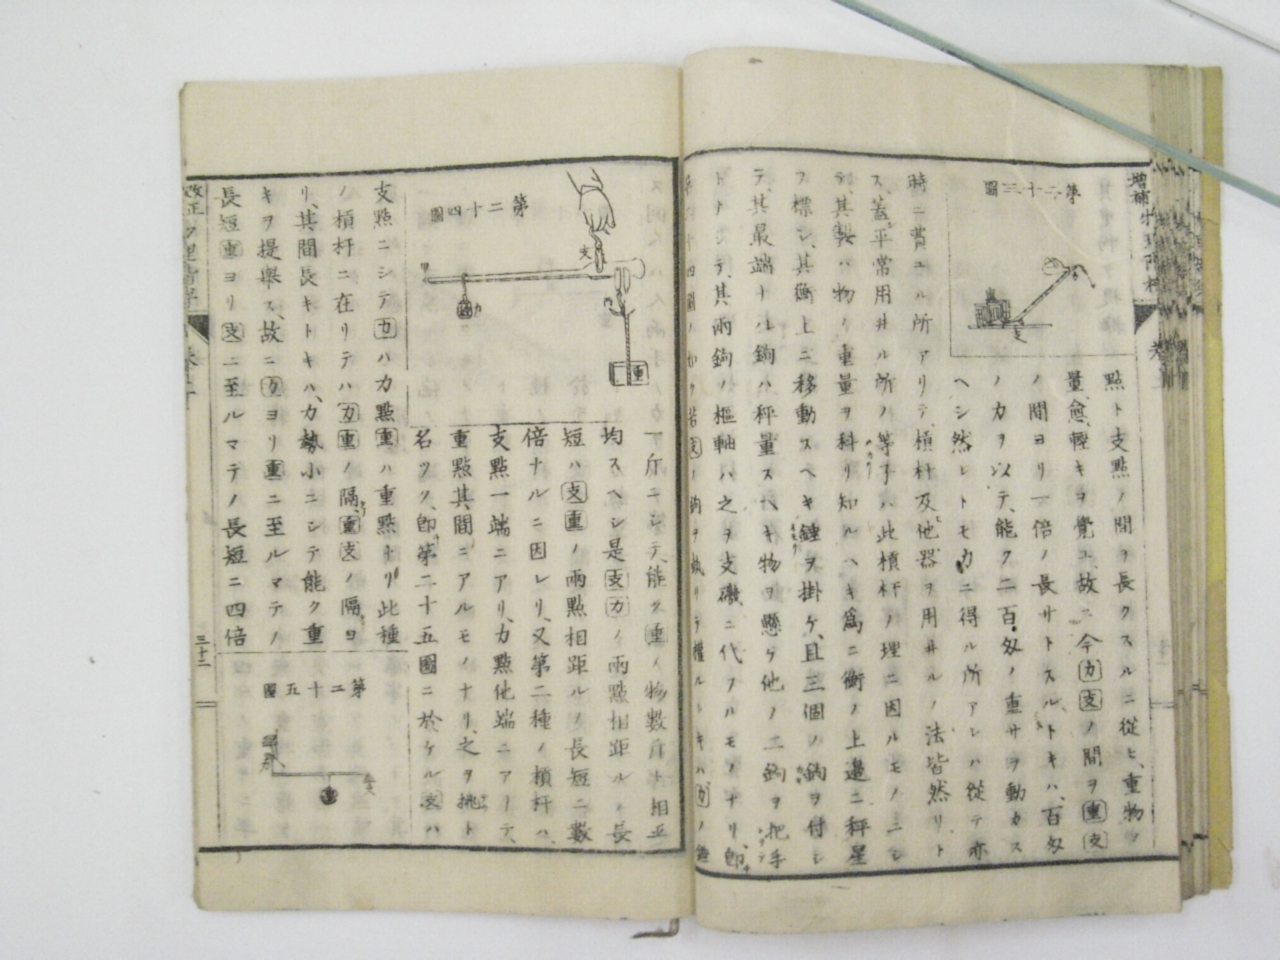 第二十三圖
點ト支點ノ間ヲ長クスルニ從ヒ、重物ノ
量愈輕キヲ覺ユ、故ニ今力支ノ間ヲ重支
ノ間ヨリ一倍ノ長サトスルトキハ、百匁
ノ力ヲ以テ、能ク二百匁ノ重サヲ動カス
ヘシ然レトモ力ニ得ル所アレハ從テ亦
時ニ費ユル所アリテ、槓杆及他器ヲ用井ルノ法皆然リト
ス、蓋平常用井ル所ノ等子ハ此槓杆ノ理ニ因ルモノニシ
テ、其製ハ物ノ重量ヲ料リ知ルヘキ爲ニ衡ノ上邊ニ秤星
ヲ標シ、其衡上ニ移動スヘキ錘ヲ掛ケ、且三個ノ鉤ヲ付シ
テ、其最端ナル鉤ハ秤量スヘキ物ヲ懸ケ他ノ二鉤ヲ把手
トナシテ、其兩鉤ノ樞軸ハ之ヲ支礙ニ代フルモノナリ、卽
第二十四圖
支
力
重
一斤ニシテ、能ク重ノ物數斤ト相平
均スヘシ是支力ノ兩點相距ルノ長
短ハ支重ノ兩點相距ルノ長短ニ數
倍ナルニ因レリ、又第二種ノ槓杆ハ、
支點一端ニアリ、力點他端ニアリテ、
重點其間ニアルモノナリ、之ヲ挑ト
名ツク、卽第二十五圖ニ於ケル支ハ
支點ニシテ力ハ力點重ハ重點ナリ此種
ノ槓杆ニ在リテハ力重ノ隔重支ノ隔ヨ
リ、其間長キトキハ、力勢小ニシテ能ク重
キヲ提擧ス、故ニ力ヨリ重ニ至ルマテノ
長短重ヨリ支ニ至ルマテノ長短ニ四倍
第二十五圖
三十二